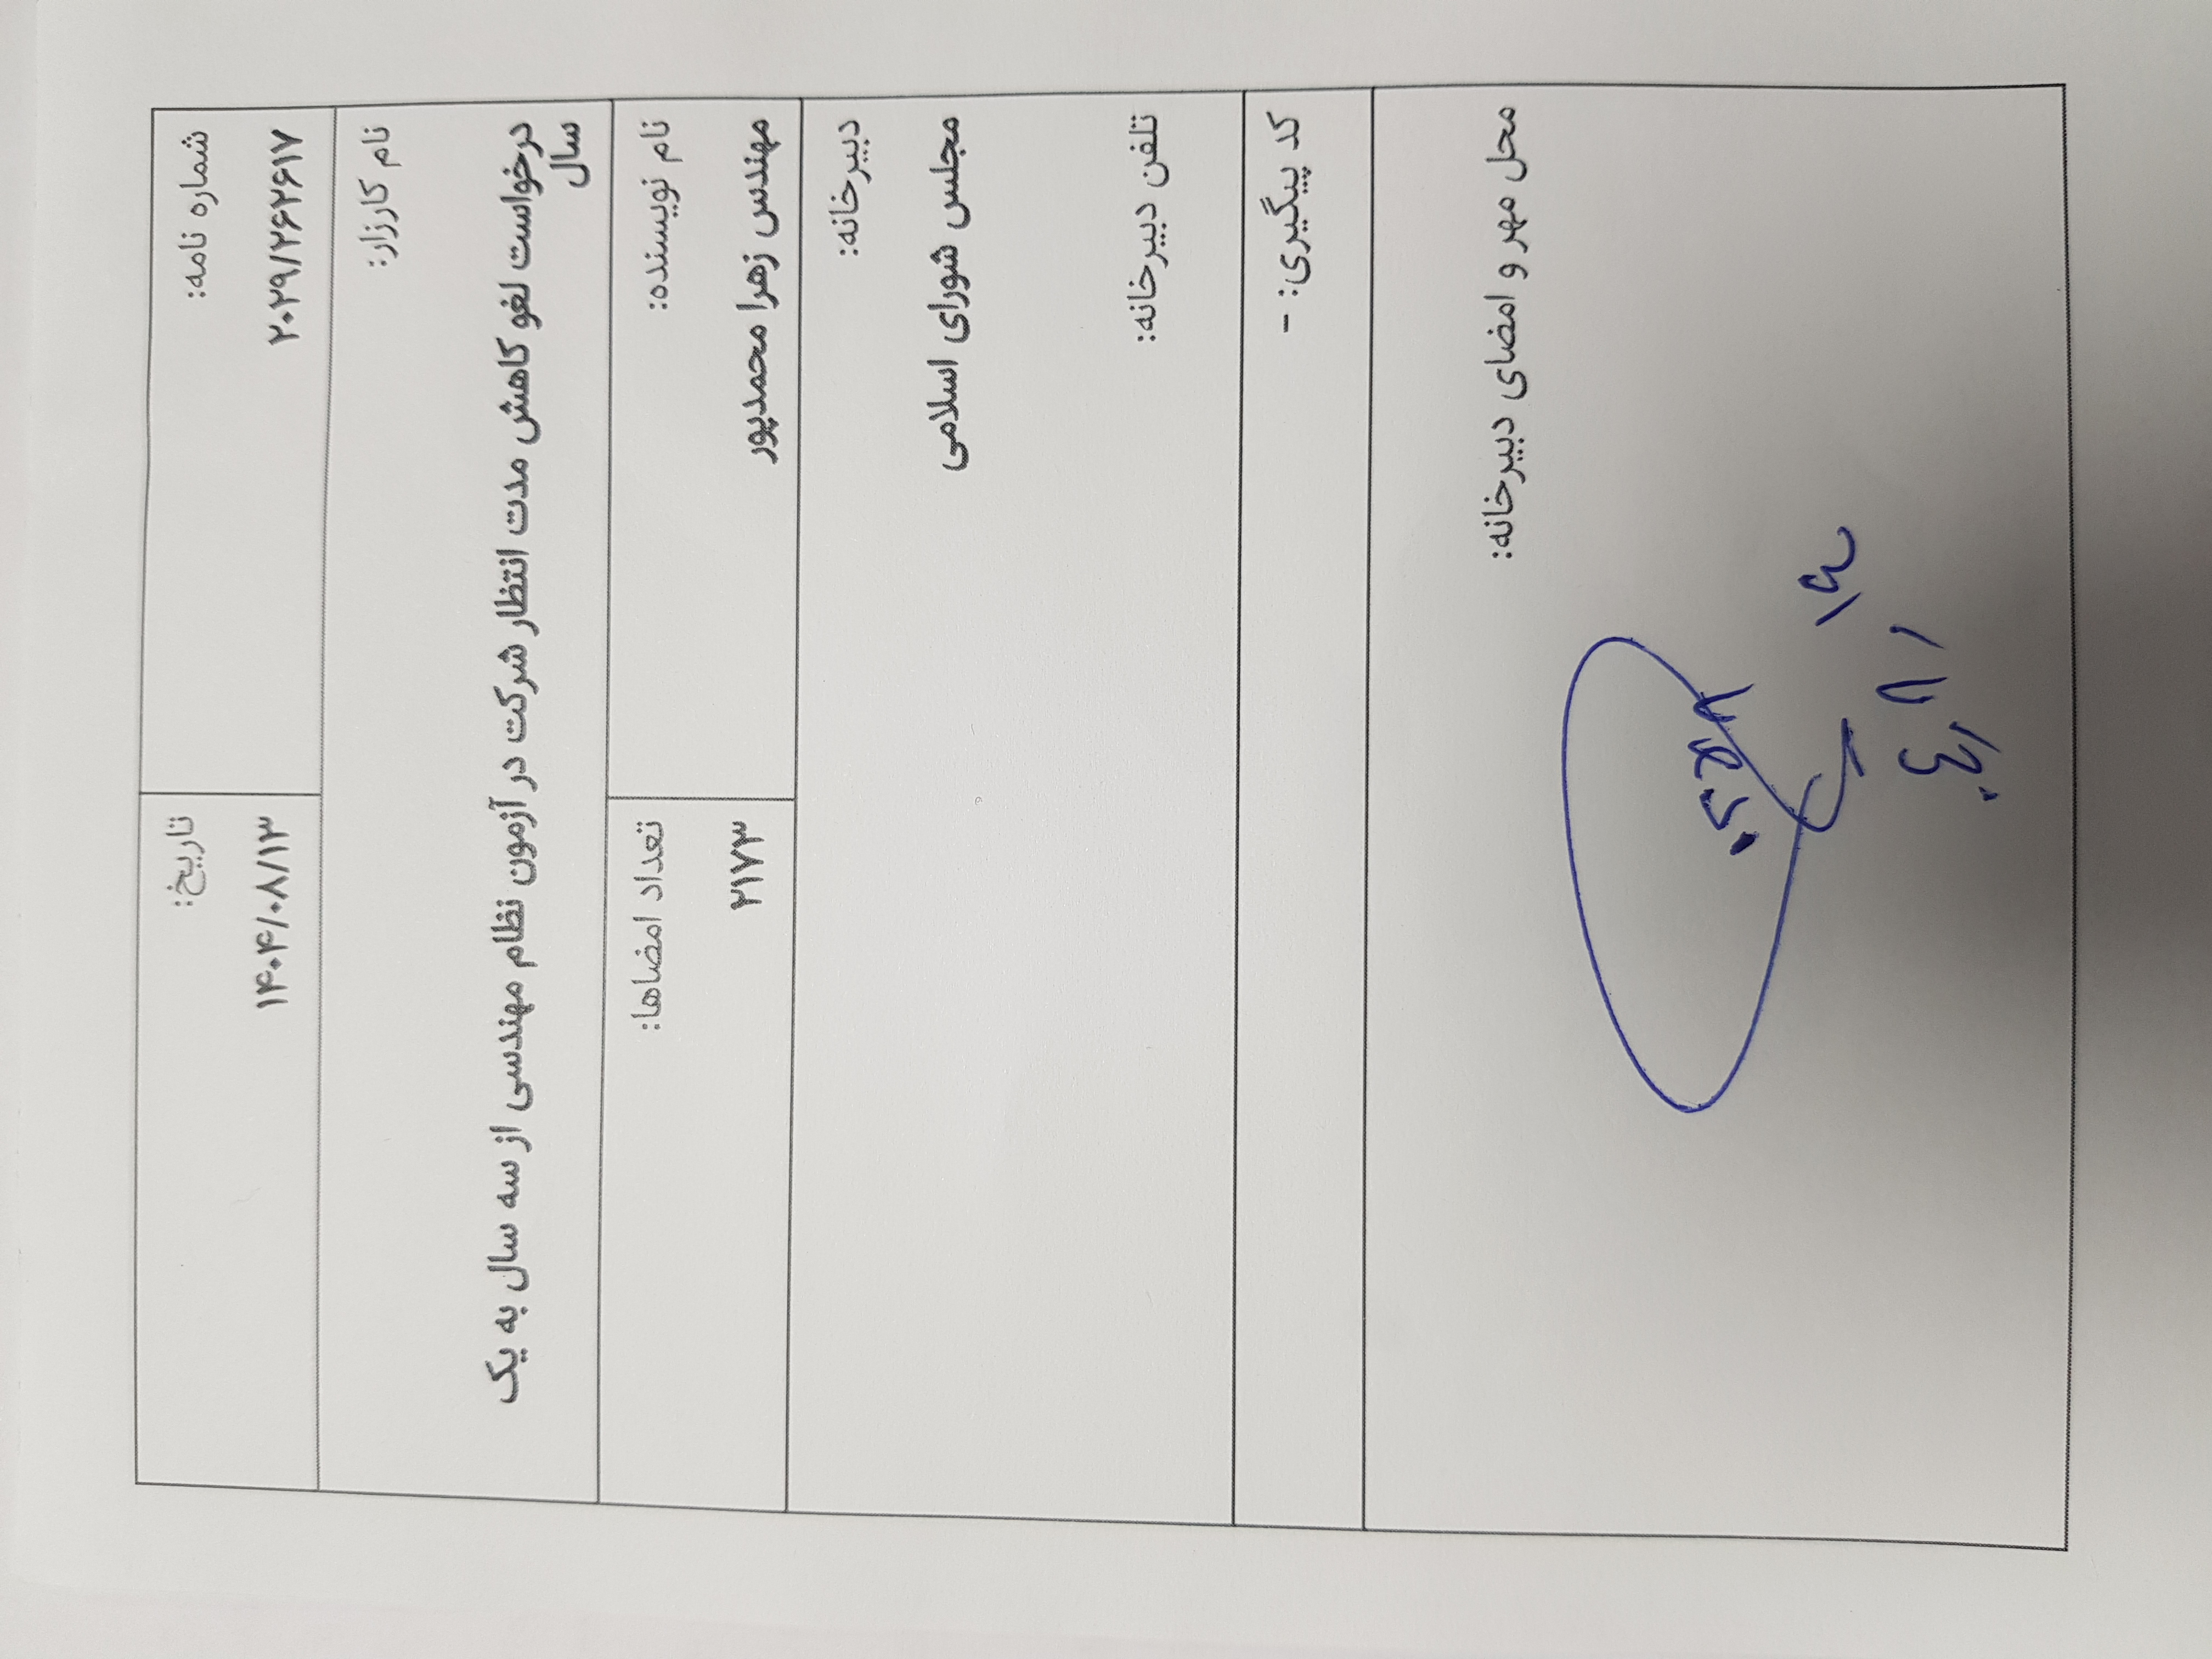 شماره نامه:
۲۰۲۹/۲۶۲۶۱۷
تاریخ:
۱۴۰۴/۰۸/۱۳
نام کارزار:
درخواست لغو کاهش مدت انتظار شرکت در آزمون نظام مهندسی از سه سال به یک
سال
نام نویسنده:
مهندس زهرا محمدپور
تعداد امضاها:
۲۱۷۳
دبیرخانه:
مجلس شورای اسلامی
تلفن دبیرخانه:
کد پیگیری: -
محل مهر و امضای دبیرخانه: